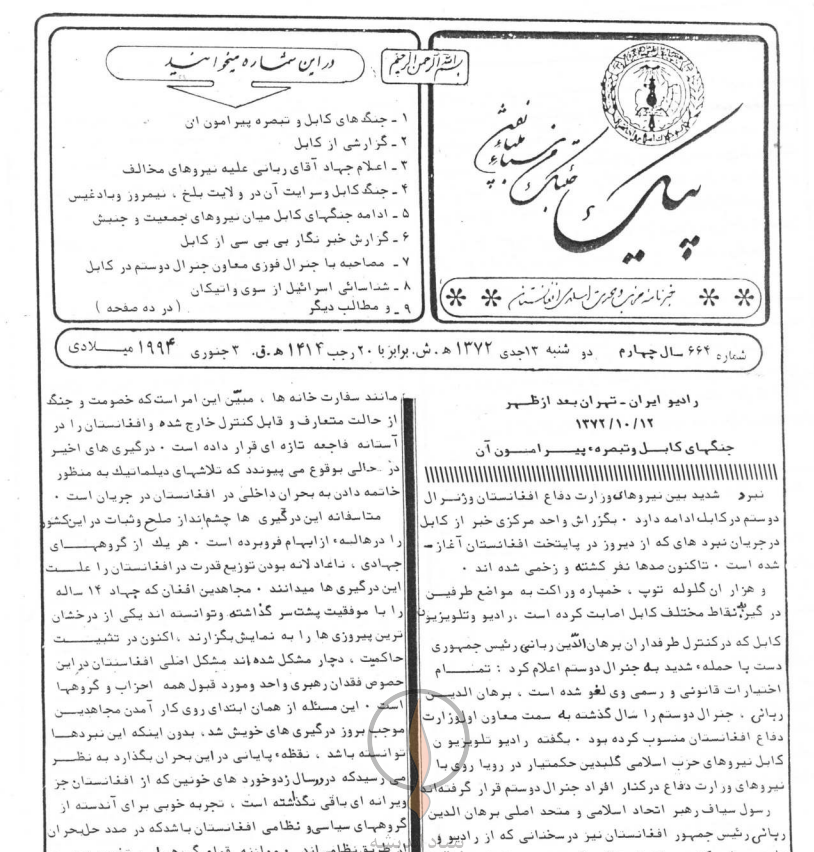 بسم الله الرحمن الرحیم
پیک
خبرنامه
در این شماره میخوانید
۱ - جنگ های کابل و تبصره پیرامون ان
۲ - گزارشی از کابل
۳ - اعلام جهاد آقای ربانی علیه نیروهای مخالف
۴ - جنگ کابل وسرایت آن در ولایت بلخ ، نیمروز وبادغیس
۵ - ادامه جنگهای کابل میان نیروهای جمعیت و جنبش
۶ - گزارش خبر نگار بی بی سی از کابل
۷ - مصاحبه با جنرال فوزی معاون جنرال دوستم در کابل
۸ - شناسائی اسرائیل از سوی واتیکان
۹ - و مطالب دیگر ( در ده صفحه )
شماره ۶۶۴ سال چهارم دو شنبه ۱۳جدی ۱۳۷۲ ه . ش. برابر با ۲۰ رجب ۱۴۱۴ ه .ق. ۳ جنوری ۱۹۹۴ میـــلادی
رادیو ایران - تهران بعد ازظـهـر
۱۳۷۲/۱۰/۱۲
جنگهای کابـل وتبصره‌ء پیـــرامـــون آن
نبرد شدید بین نیروهای وزارت دفاع افغانستان وژنـرال
دوستم درکابل ادامه دارد ۰ بگزراش واحد مرکزی خبر از کابل
درجریان نبرد های که از دیروز در پایتخت افغانستان آغاز -
شده است ۰ تاکنون صدها نفر کشته و زخمی شده اند ۰
و هزار ان گلوله توپ ، خمپاره وراکت به مواضع طرفیــن
در گیر نقاط مختلف کابل اصابت کرده است ،رادیو وتلویزیون
کابل که درکنترل طرفداران برهان الدین ربانی رئیس جمهوری
دست با حمله‌ء شدید به جنرال دوستم اعلام کرد : تمــــام
اختیارات قانونی و رسمی وی لغو شده است ، برهان الدیــن
ربانی ، جنرال دوستم را سال گذشته به سمت معاون اول وزارت
دفاع افغانستان منسوب کرده بود ۰ بگفته رادیو تلویزیو ن
کابل نیروهای حزب اسلامی گلبدین حکمتیار در رویا روی با
نیروهای وزارت دفاع درکنار افراد جنرال دوستم قرار گرفته‌اند
رسول سیاف رهبر اتحاد اسلامی و متحد اصلی برهان الدین
ربانی رئیس جمهور افغانستان نیز درسخنانی که از رادیو و
مانند سفارت خانه ها ، مبیّن این امر است که خصومت و جنگ
از حالت متعارف و قابل کنترل خارج شده وافغانستان را در
آستانه فاجعه تازه ای قرار داده است ۰ درگیری های اخیر
در حالی بوقوع می پیوندد که تلاشهای دیلماتیك به منظور
خاتمه دادن به بحران داخلی در افغانستان در جریان است ۰
متاسفانه این درگیری ها چشم‌انداز صلح وثبات در این‌کشور
را درهاله‌ء ازابهام فروبرده است ۰ هر یك از گروههـــای
جهادی ، ناعادلانه بودن توزیع قدرت در افغانستان را علـــت
این درگیری ها میدانند ۰ مجاهدین افغان که جهاد ۱۴ ساله
را با موفقیت پشت‌سر گذاشته وتوانسته اند یکی از درخشان
ترین پیروزی ها را به نمایش بگزارند ،اکنون در تثبیـــت
حاکمیت ، دچار مشکل شده‌اند مشکل اصلی افغانستان دراین
خصوص فقدان رهبری واحد ومورد قبول همه احزاب و گروهها
است ۰ این مسئله از همان ابتدای روی کار آمدن مجاهدیــن
موجب بروز درگیری های خویش شد، بدون اینکه این نبردهـا
توانسته باشد ، نقطه‌ء پایانی دراین بحران بگذارد به نظــر
می رسیدکه درورسال زدوخورد های خونین که از افغانستان جز
ویرانه ای باقی نگذاشته است ، تجربه خوبی برای آندسته از
گروههای سیاسی و نظامی افغانستان باشدکه در صدد حل‌بحران